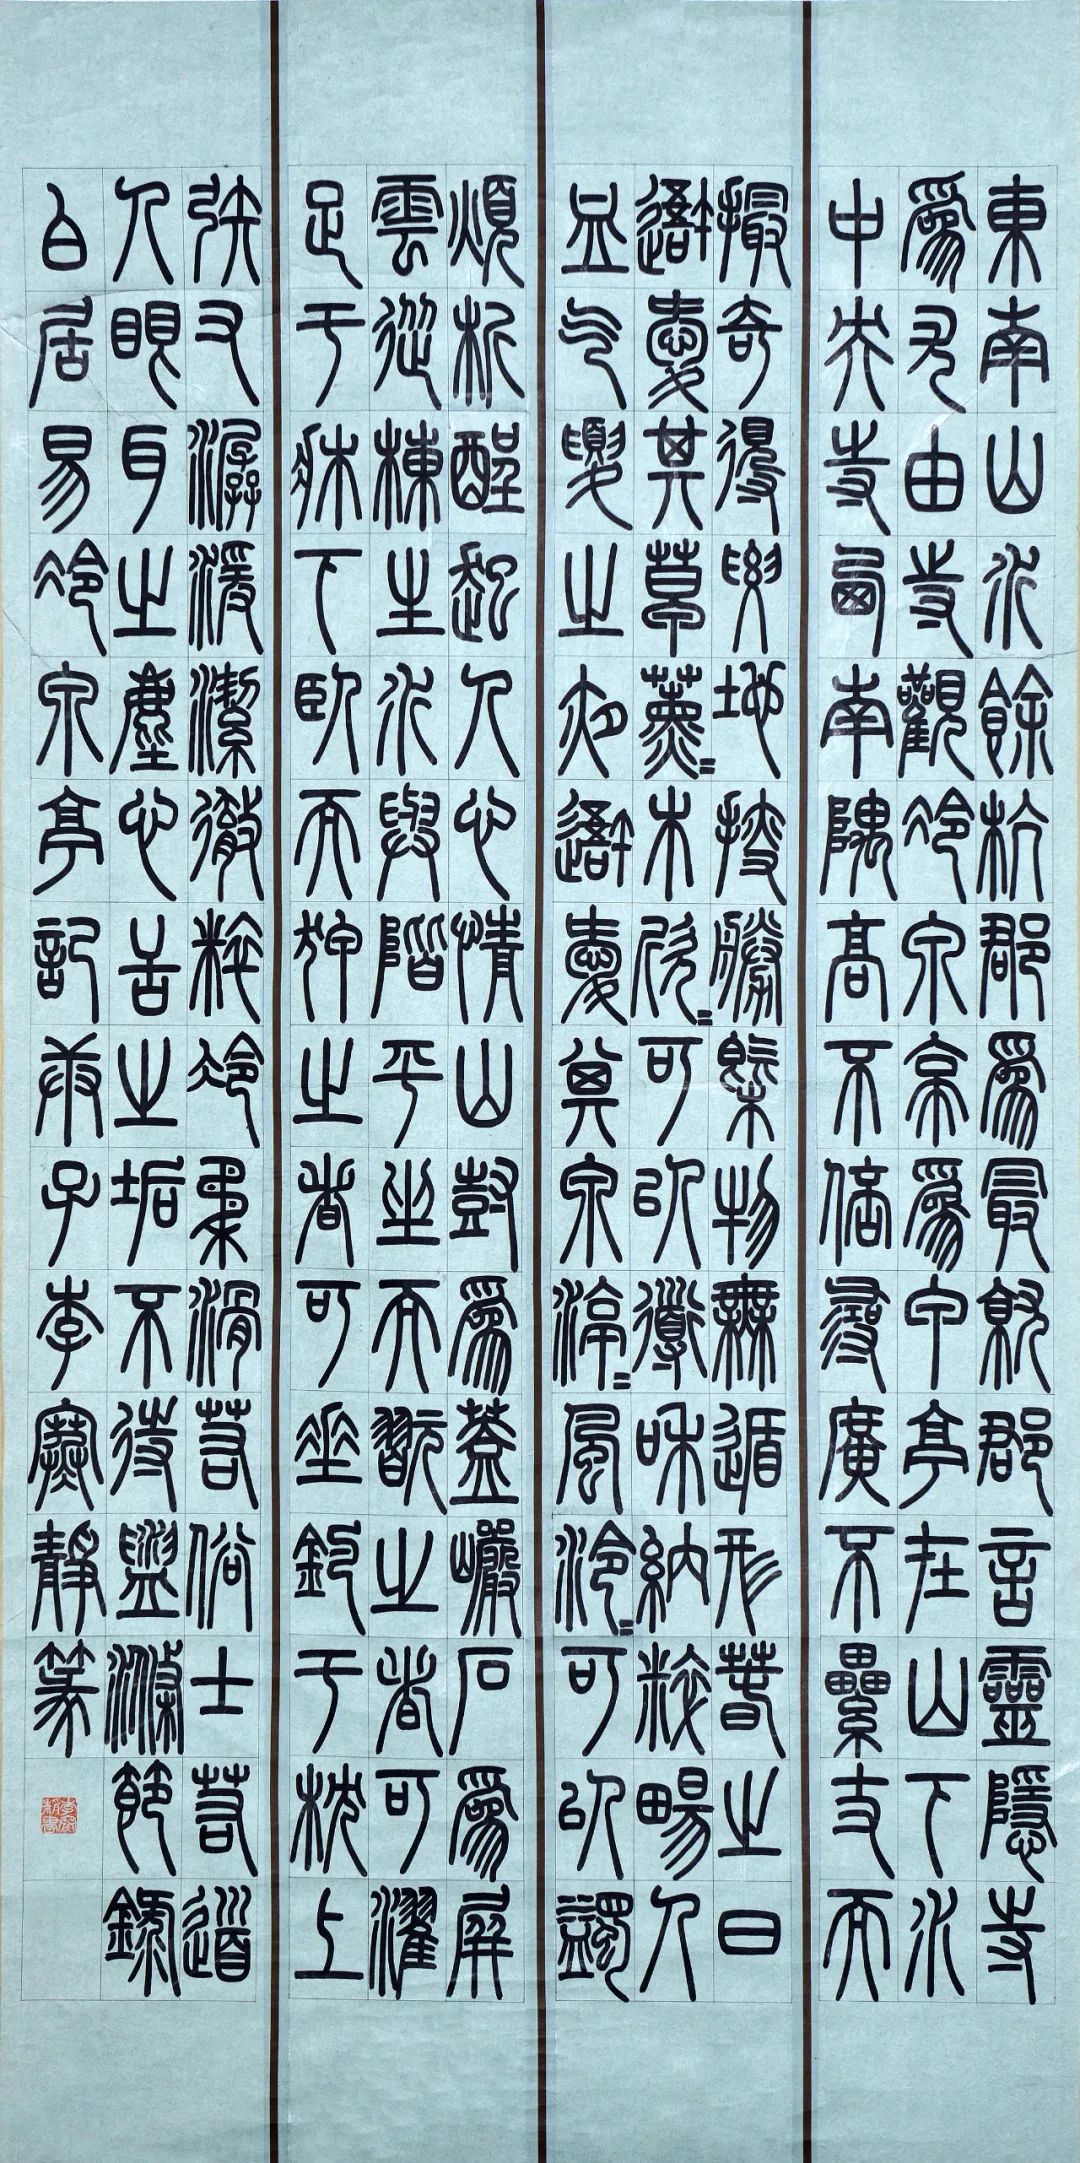 東南山水餘杭郡為最就郡言靈隱寺
為尤由寺觀冷泉亭為甲亭在山下水
中央寺西南隅高不倍尋廣不累丈而
撮奇得要地搜勝概物無遁形春之日
吾愛其草薰=木欣=可以導和納粹暢人
血氣夏之夜吾愛其泉渟=風泠=可以蠲
煩析酲起人心情山樹為蓋巖石為屏
雲從棟生水與階平坐而翫之者可濯
足于牀下臥而狎之者可垂釣于枕上
矧又潺湲潔徹粹冷柔滑若俗士若道
人眼耳之塵心舌之垢不待盥滌節錄
白居易冷泉亭記庚子李靜篆